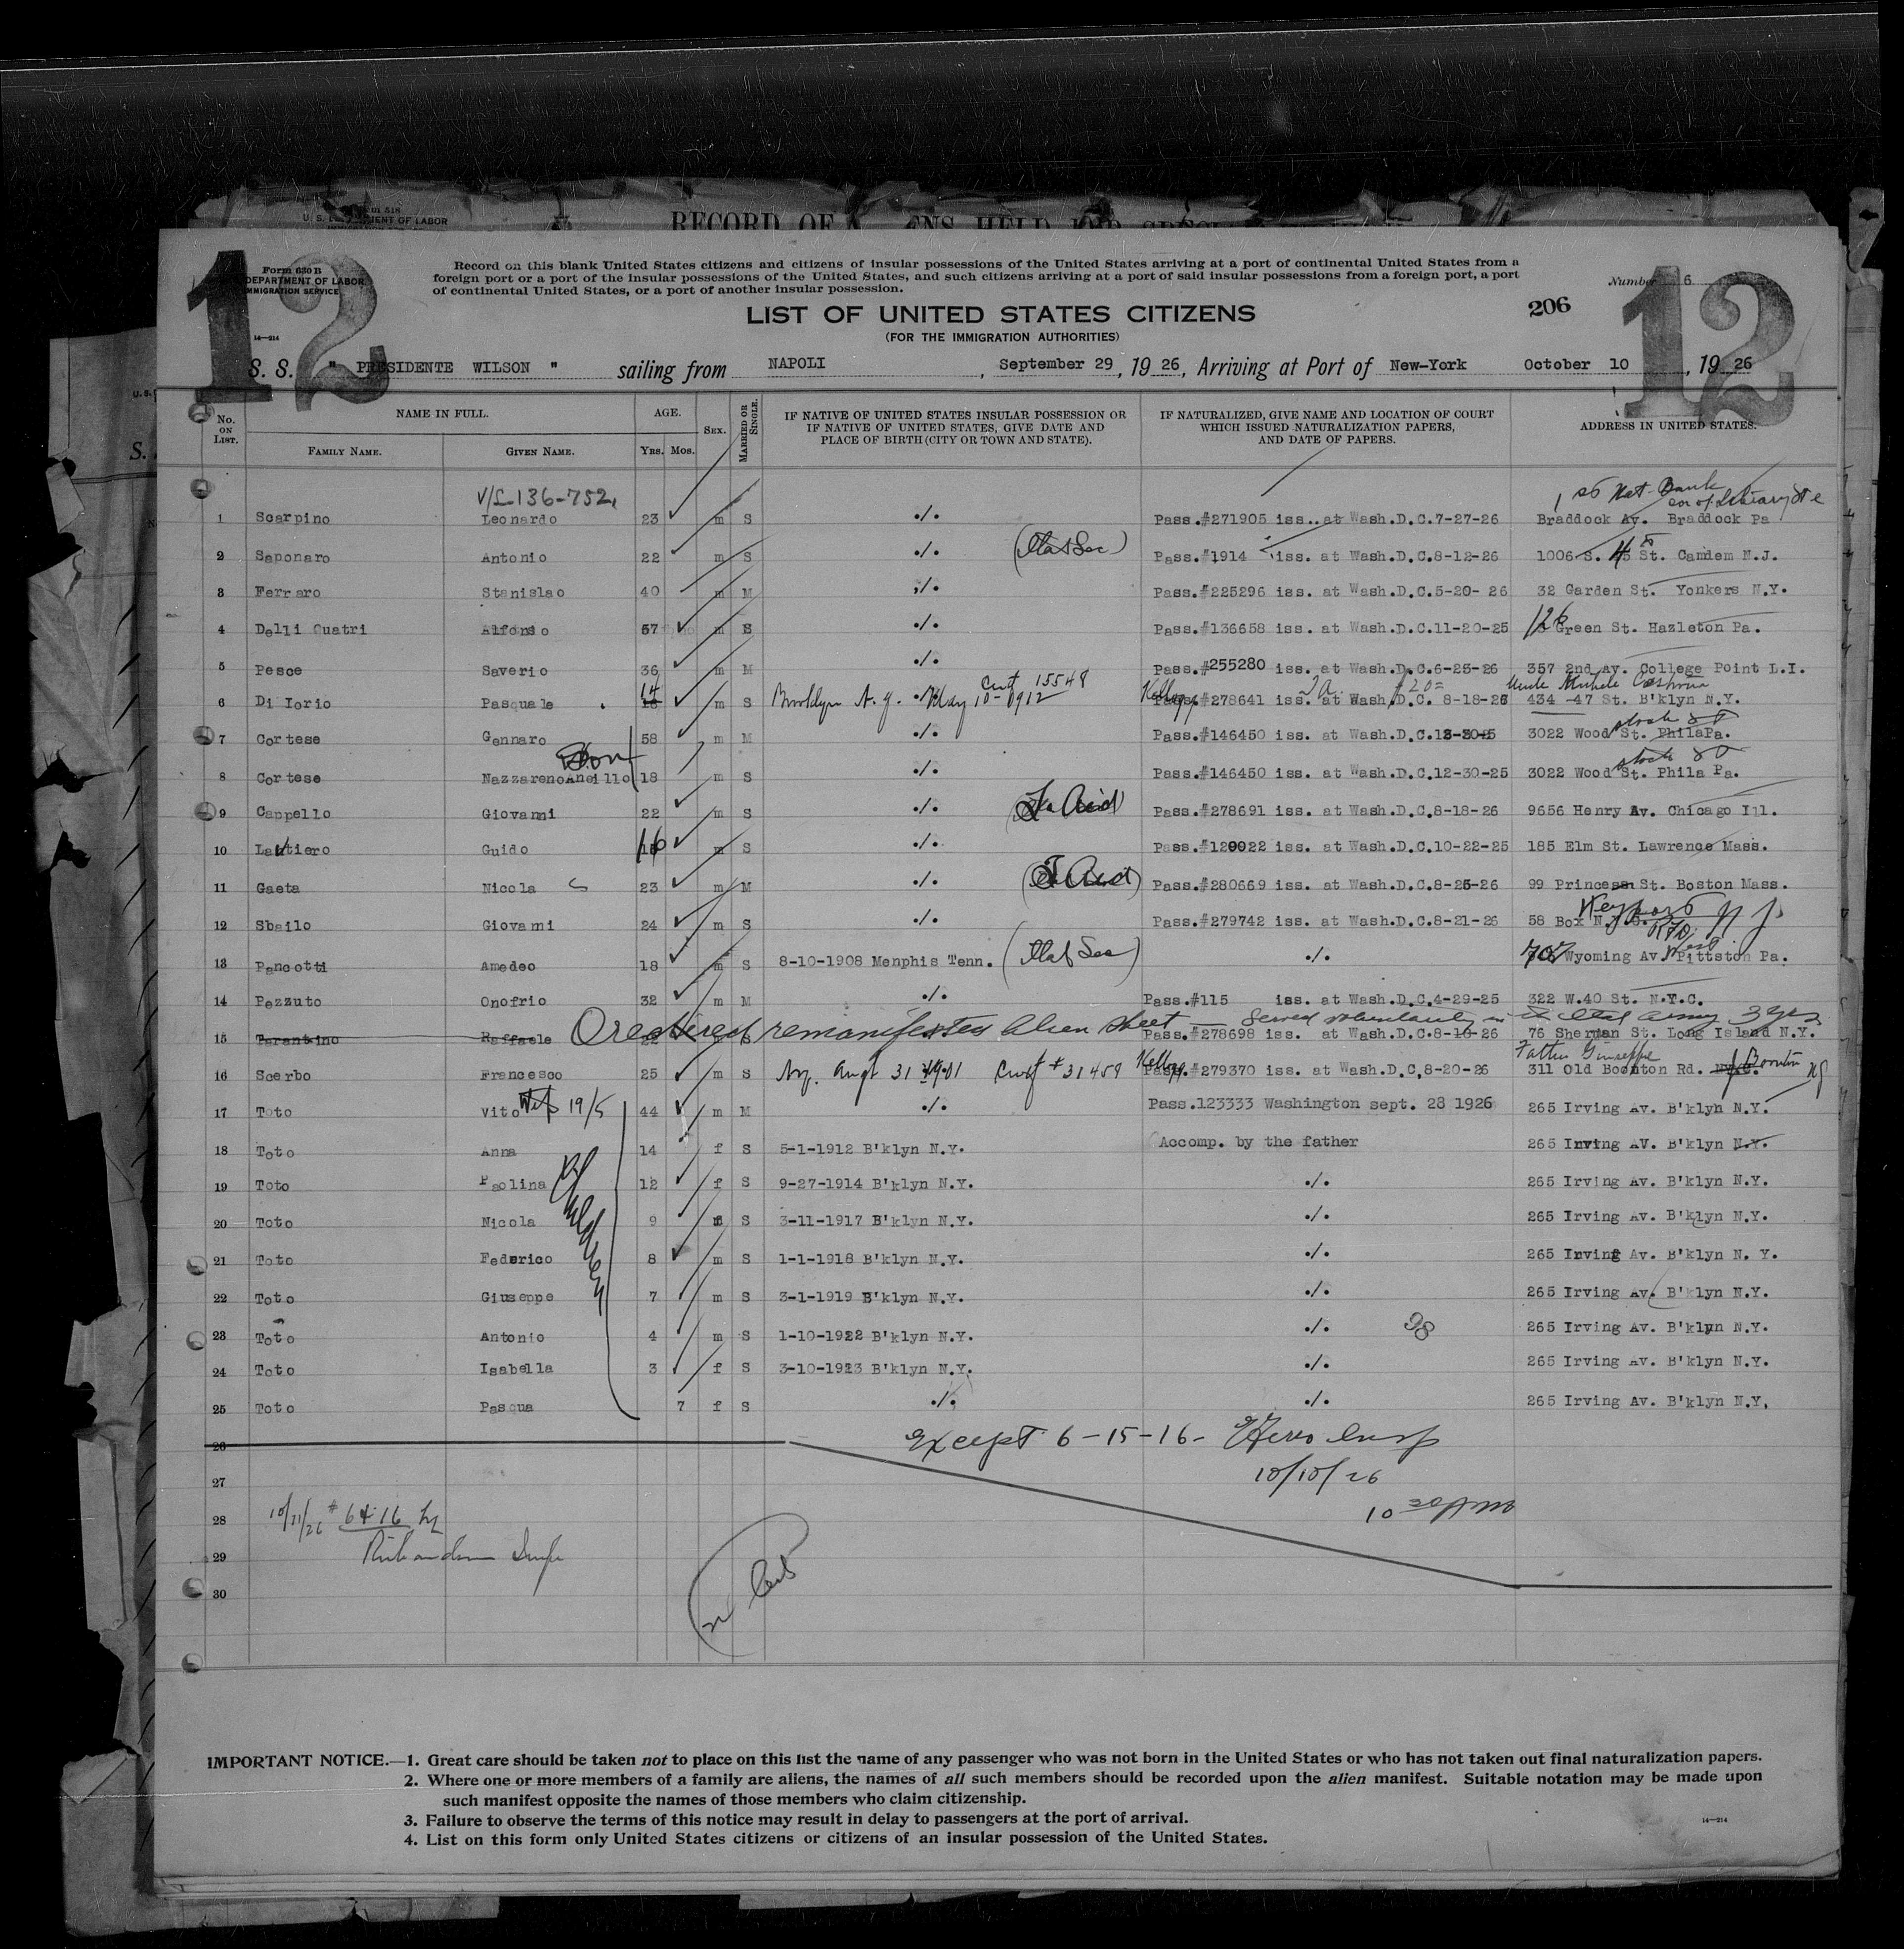 RECORD OF A ENS HELD FOR SPECI
U. S. DEPARTMENT OF LABOR
12
12
Form 630 B
DEPARTMENT OF LABOR
IMMIGRATION SERVICE
14—214
Record on this blank United States citizens and citizens of insular possessions of the United States arriving at a port of continental United States from a
foreign port or a port of the insular possessions of the United States, and such citizens arriving at a port of said insular possessions from a foreign port, a port
of continental United States, or a port of another insular possession.
Number 6
206
LIST OF UNITED STATES CITIZENS
(FOR THE IMMIGRATION AUTHORITIES)
S. S. " PRESIDENTE WILSON " sailing from NAPOLI, September 29, 1926, Arriving at Port of New-York October 10, 1926
No. ON LIST. NAME IN FULL. AGE. SEX. MARRIED OR SINGLE. IF NATIVE OF UNITED STATES INSULAR POSSESSION OR IF NATIVE OF UNITED STATES, GIVE DATE AND PLACE OF BIRTH (CITY OR TOWN AND STATE). IF NATURALIZED, GIVE NAME AND LOCATION OF COURT WHICH ISSUED NATURALIZATION PAPERS, AND DATE OF PAPERS. ADDRESS IN UNITED STATES.
FAMILY NAME. GIVEN NAME. Yrs. Mos.
V/L-136-752,
1st Nat. Bank
1 Scarpino Leonardo 23 m S ./. Pass.#271905 iss. at Wash.D.C.7-27-26 Braddock Av. Braddock Pa
2 Saponaro Antonio 22 m S ./. Pass.#1914 iss. at Wash.D.C.8-12-26 1006 S. St. Camdem N.J.
3 Ferraro Stanislao 40 m M ./. Pass.#225296 iss. at Wash.D.C.5-20-26 32 Garden St. Yonkers N.Y.
4 Delli Quatri Alfonso 57 m S ./. Pass.#136658 iss. at Wash.D.C.11-20-25 126 Green St. Hazleton Pa.
5 Pesce Saverio 36 m M ./. Pass.#255280 iss. at Wash.D.C.6-25-26 357 2nd Av. College Point L.I.
Cert 15548 Uncle Michele
6 Di Iorio Pasquale 14 m S Brooklyn N.Y. May 10-1912 Kellogg Pass.#278641 iss. at Wash.D.C. 8-18-26 434 -47 St. B'klyn N.Y.
7 Cortese Gennaro 58 m M ./. Pass.#146450 iss. at Wash.D.C.12-30-25 3022 Wood St. PhilaPa.
Son
8 Cortese NazzarenoAneillo 18 m S ./. Pass.#146450 iss. at Wash.D.C.12-30-25 3022 Wood St. Phila Pa.
9 Cappello Giovanni 22 m S ./. Pass.#278691 iss. at Wash.D.C.8-18-26 9656 Henry Av. Chicago Ill.
10 Lautiero Guido 16 m S ./. Pass.#120022 iss. at Wash.D.C.10-22-25 185 Elm St. Lawrence Mass.
11 Gaeta Nicola 23 m M ./. Pass.#280669 iss. at Wash.D.C.8-25-26 99 Princess St. Boston Mass.
12 Sbailo Giovanni 24 m S ./. Pass.#279742 iss. at Wash.D.C.8-21-26 58 Box N.J. Keyport N J.
RFD. West
13 Pancotti Amedeo 18 m S 8-10-1908 Menphis Tenn. ./. 707 Wyoming Av. Pittston Pa.
14 Pezzuto Onofrio 32 m M ./. Pass.#115 iss. at Wash.D.C.4-29-25 322 W.40 St. N.Y.C.
Ordered remanifested Alien sheet — Served voluntarily in Ital army 3 yrs
15 Tarantino Raffaele 22 m S Pass.#278698 iss. at Wash.D.C.8-18-26 76 Sherman St. Long Island N.Y.
Father Giuseppe
16 Scerbo Francesco 25 m S N.Y. Augt 31 1901 Certf # 31459 Kellogg Pass.#279370 iss. at Wash.D.C,8-20-26 311 Old Boonton Rd. Boonton NJ
17 Toto Vito 19/5 44 m M ./. Pass.123333 Washington sept. 28 1926 265 Irving Av. B'klyn N.Y.
18 Toto Anna 14 f S 5-1-1912 B'klyn N.Y. Accomp. by the father 265 Irving AV. B'klyn N.Y.
children
19 Toto Paolina 12 f S 9-27-1914 B'klyn N.Y. ./. 265 Irving Av. B'klyn N.Y.
20 Toto Nicola 9 m S 3-11-1917 B'klyn N.Y. ./. 265 Irving Av. B'klyn N.Y.
21 Toto Federico 8 m S 1-1-1918 B'klyn N.Y. ./. 265 Irving Av. B'klyn N. Y.
22 Toto Giuseppe 7 m S 3-1-1919 B'klyn N.Y. ./. 265 Irving Av. B'klyn N.Y.
23 Toto Antonio 4 m S 1-10-1922 B'klyn N.Y. ./. 265 Irving Av. B'klyn N.Y.
24 Toto Isabella 3 f S 3-10-1923 B'klyn N.Y. ./. 265 Irving Av. B'klyn N.Y.
25 Toto Pasqua 7 f S ./. ./. 265 Irving Av. B'klyn N.Y,
26 Except 6-15-16- Insp
27 10/10/26
28 10/11/26 # 6416 10 30 PM
29 Richardson Insp
30
IMPORTANT NOTICE.—1. Great care should be taken not to place on this list the name of any passenger who was not born in the United States or who has not taken out final naturalization papers.
2. Where one or more members of a family are aliens, the names of all such members should be recorded upon the alien manifest. Suitable notation may be made upon
such manifest opposite the names of those members who claim citizenship.
3. Failure to observe the terms of this notice may result in delay to passengers at the port of arrival.
4. List on this form only United States citizens or citizens of an insular possession of the United States.
14—214